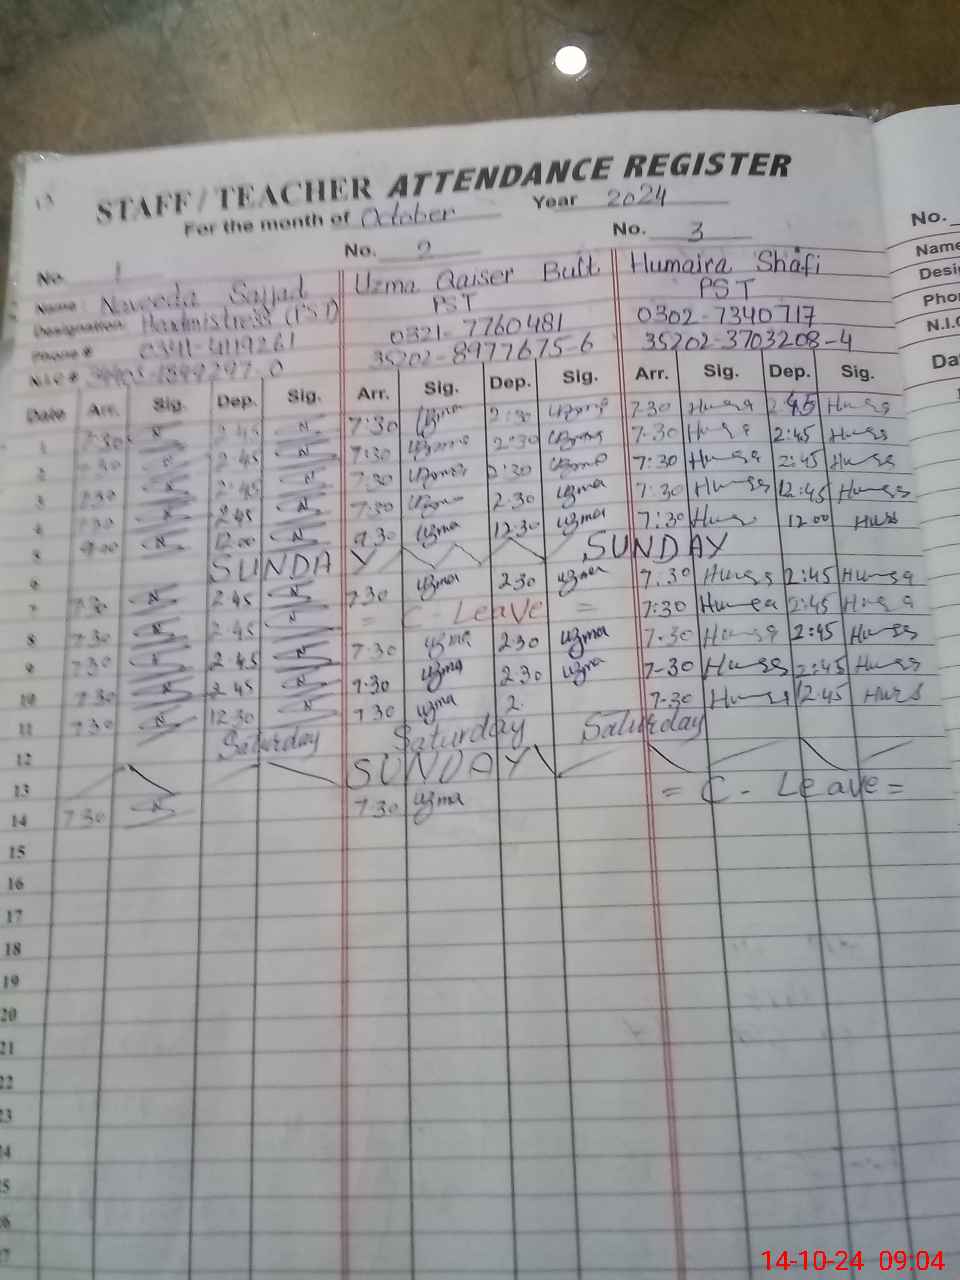 STAFF/TEACHER ATTENDANCE REGISTER
For the month of October Year 2024
No. 1 No. 2 No. 3 No.
Name: Naveeda Sajjad Uzma Qaiser Butt Humaira Shafi Name
Designation: Headmistress (PST) PST PST Desi
Phone # 0321-7760481 0302-7340717 Pho
N.I.C # 35202-8977675-6 35202-3703208-4 N.I.C
Date Arr. Sig. Dep. Sig. Arr. Sig. Dep. Sig. Arr. Sig. Dep. Sig. Da
1 7:30 N 2:45 N 7:30 Uzma 2:30 Uzma 7:30 2:45
2 7:30 N 2:45 N 7:30 Uzma 2:30 Uzma 7:30 2:45
3 7:30 N 2:45 N 7:30 Uzma 2:30 Uzma 7:30 2:45
4 7:30 N 2:45 N 7:30 Uzma 2:30 Uzma 7:30 12:45
5 9:00 N 12:00 N 9:30 Uzma 12:30 Uzma 7:30 12:00
6 SUNDAY SUNDAY
7 7:30 N 2:45 N 7:30 Uzma 2:30 Uzma 7:30 2:45
8 7:30 N 2:45 N = C-Leave = 7:30 2:45
9 7:30 N 2:45 N 7:30 Uzma 2:30 Uzma 7:30 2:45
10 7:30 N 2:45 N 7:30 Uzma 2:30 Uzma 7-30 2:45
11 7:30 N 12:30 N 7:30 Uzma 2. 7:30 12:45
12 Saturday Saturday Saturday
13 SUNDAY
14 7:30 N 7:30 Uzma = C - Leave =
15
16
17
18
19
20
21
22
23
24
25
26
27
14-10-24 09:04